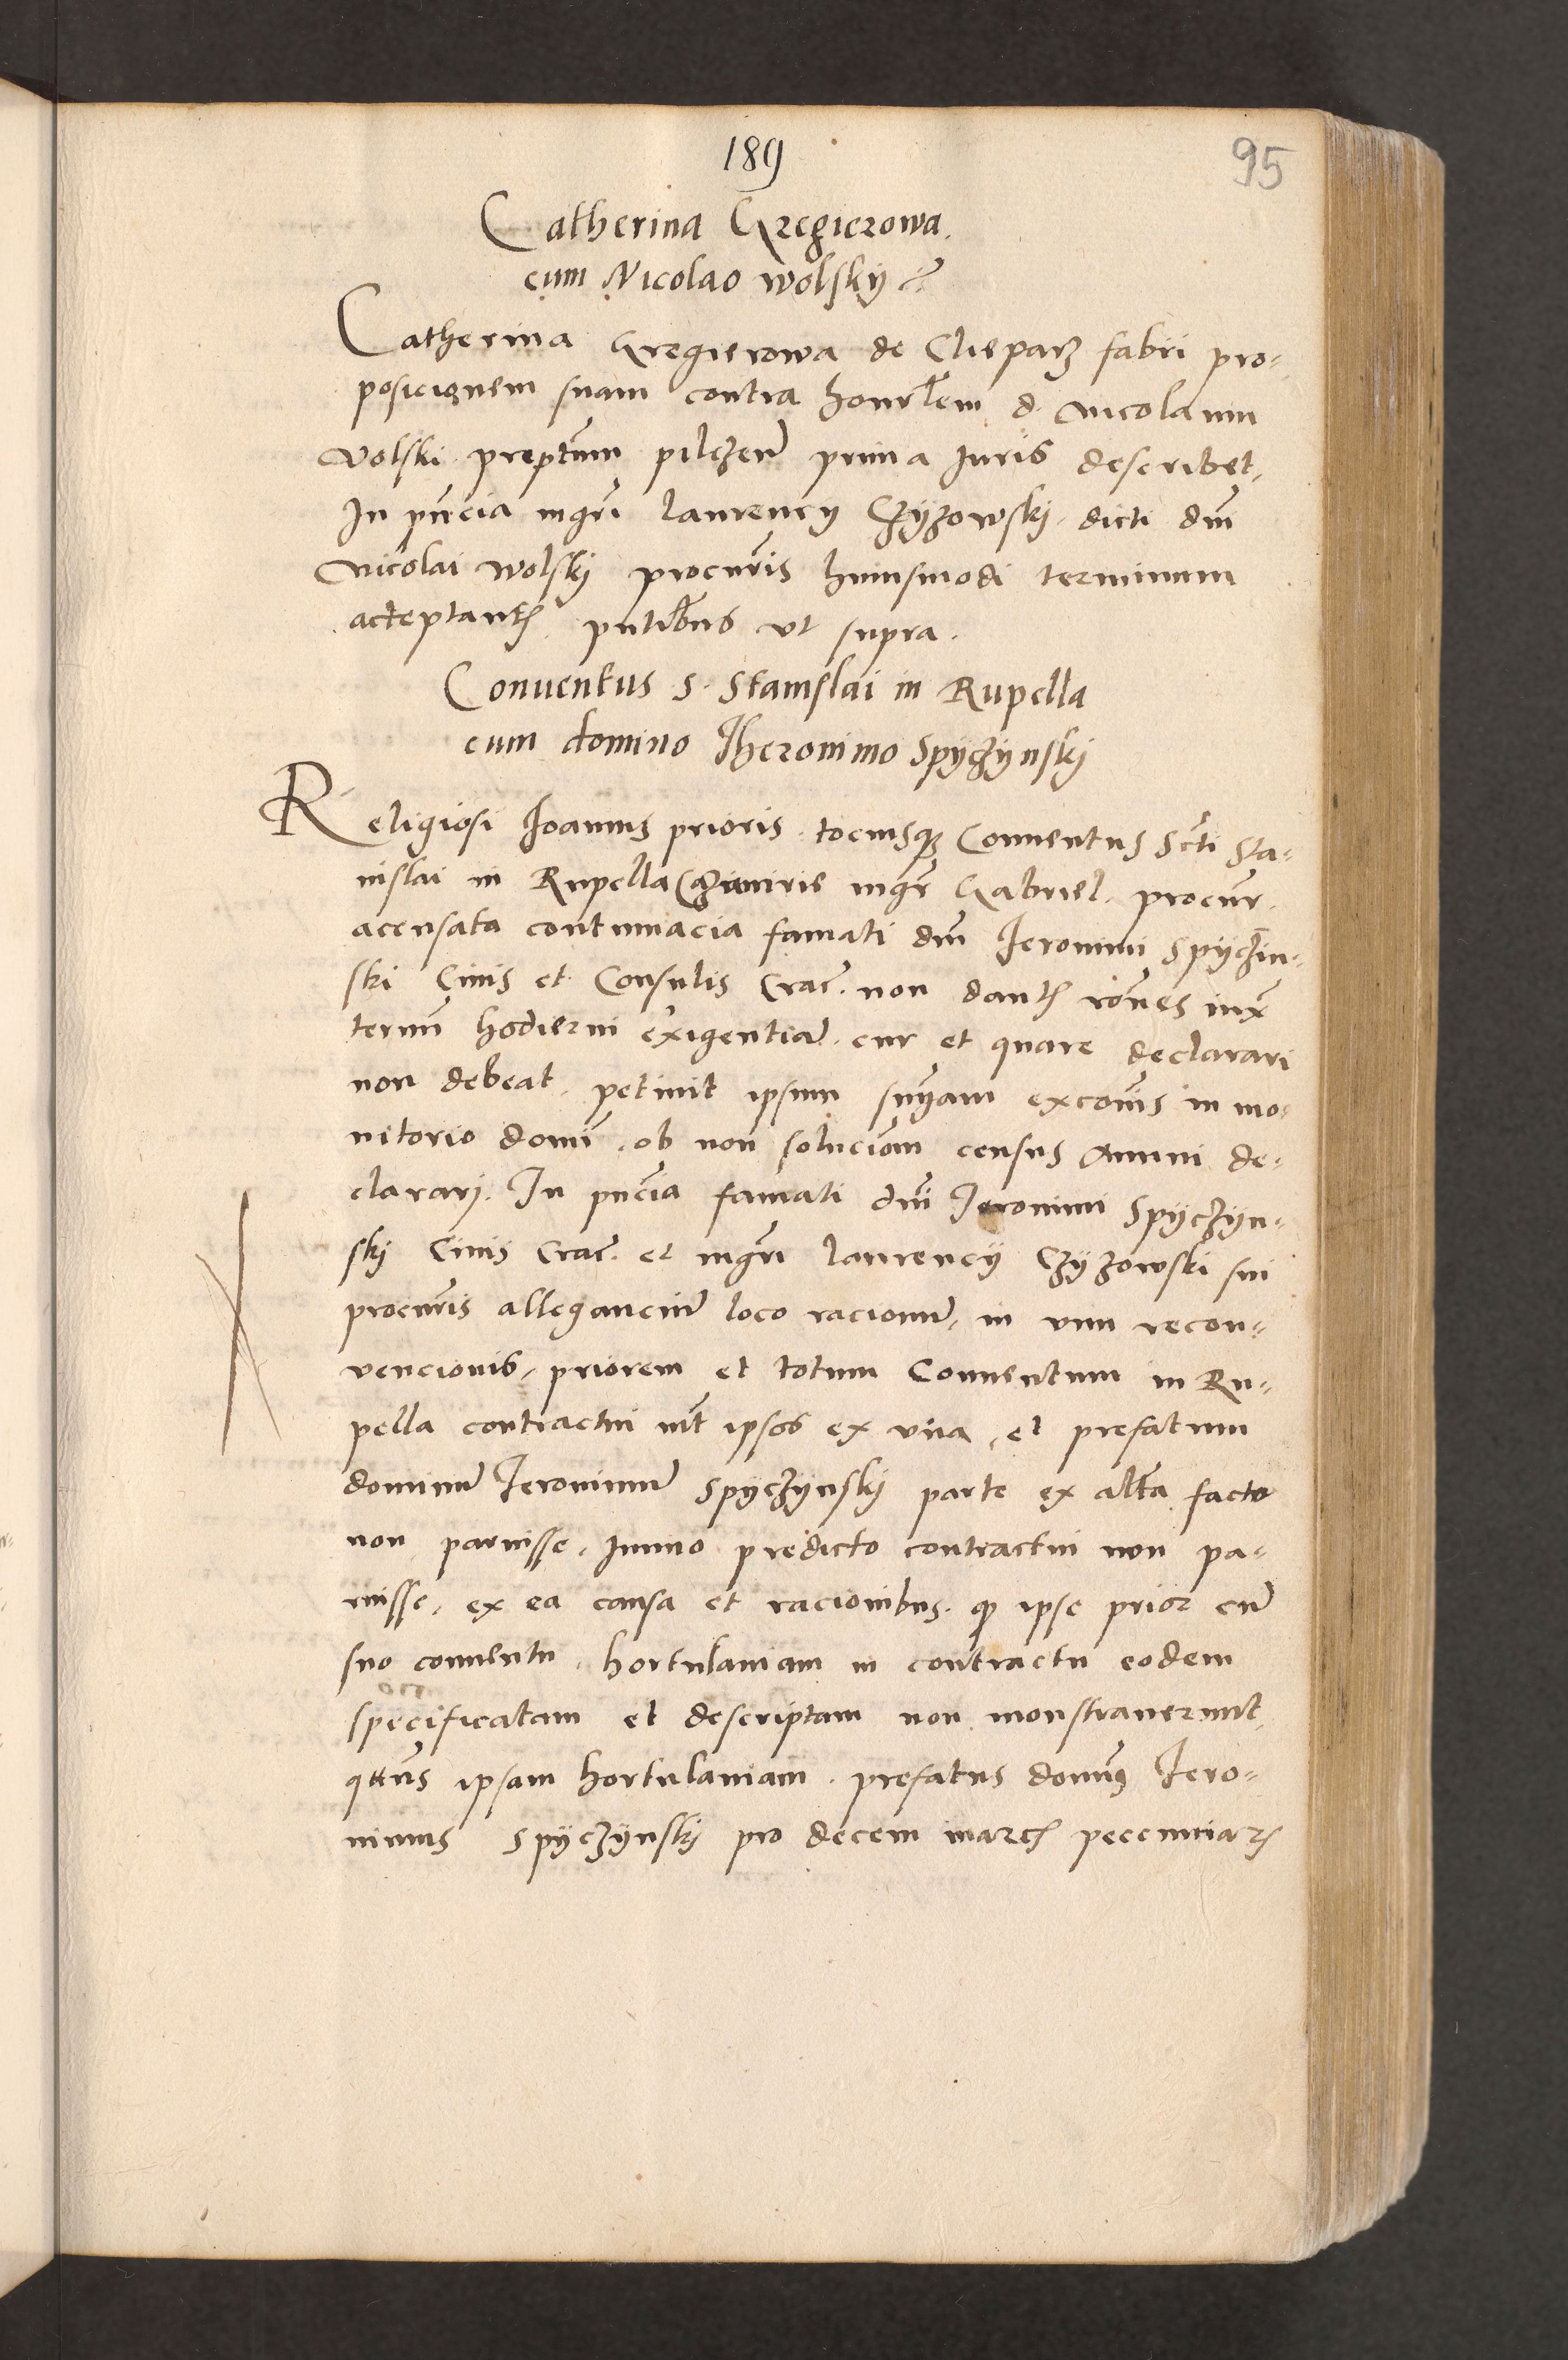 189
95
Catherina Gregierowa
cum Nicolao Wolsky
Catherina Gregierowa de Clieparz fabri pro-
posicionem suam contra honorblem d. Nicolaum
Volski preptum pilczen prima Juris describet,
In pncia mgri Laurency Czyzowsky dicti dni
Nicolai Wolsky procuris huiusmodi terminum
acceptantis pntibus vt supra.
Conuentus S. Stanislai in Rupella
cum domino Jheronimo Spyczynsky
Religiosi Joannis prioris tociusque Conuentus Scti Sta-
nislai in Rupella Cazimirie mgr Gabriel procur
acusata contumacia famati dni Jeronimi Spyczin-
ski Ciuis et Consulis Crac. non dantis rones iux
termi hodierni exigentiam cur et quare declarari
non debeat, petiuit ipsum snyam excois in mo-
nitorio domi ob non solucionem census Annui de-
clarari. In pncia famati dni Jeronimi Spyczyn-
sky Ciuis Crac. et mgri Laurency Czyzowski sui
procuris allegancium loco racionum, in vim recon-
vencionis, priorem et totum Conuentum in Ru-
pella contractui int ipsos ex vna, et prefatum
dominum Jeronimum Spyczynsky parte ex altera facto
non paruisse, Immo predicto contractui non pa-
ruisse, ex ea causa et racionibus. quod ipse prior cum
suo conuentu, hortulaniam in contractu eodem
specificatam et descriptam non monstrauerunt,
ipsam hortulaniam prefatus dominus Jero-
nimus Spyczynsky pro decem marcis pecuniar